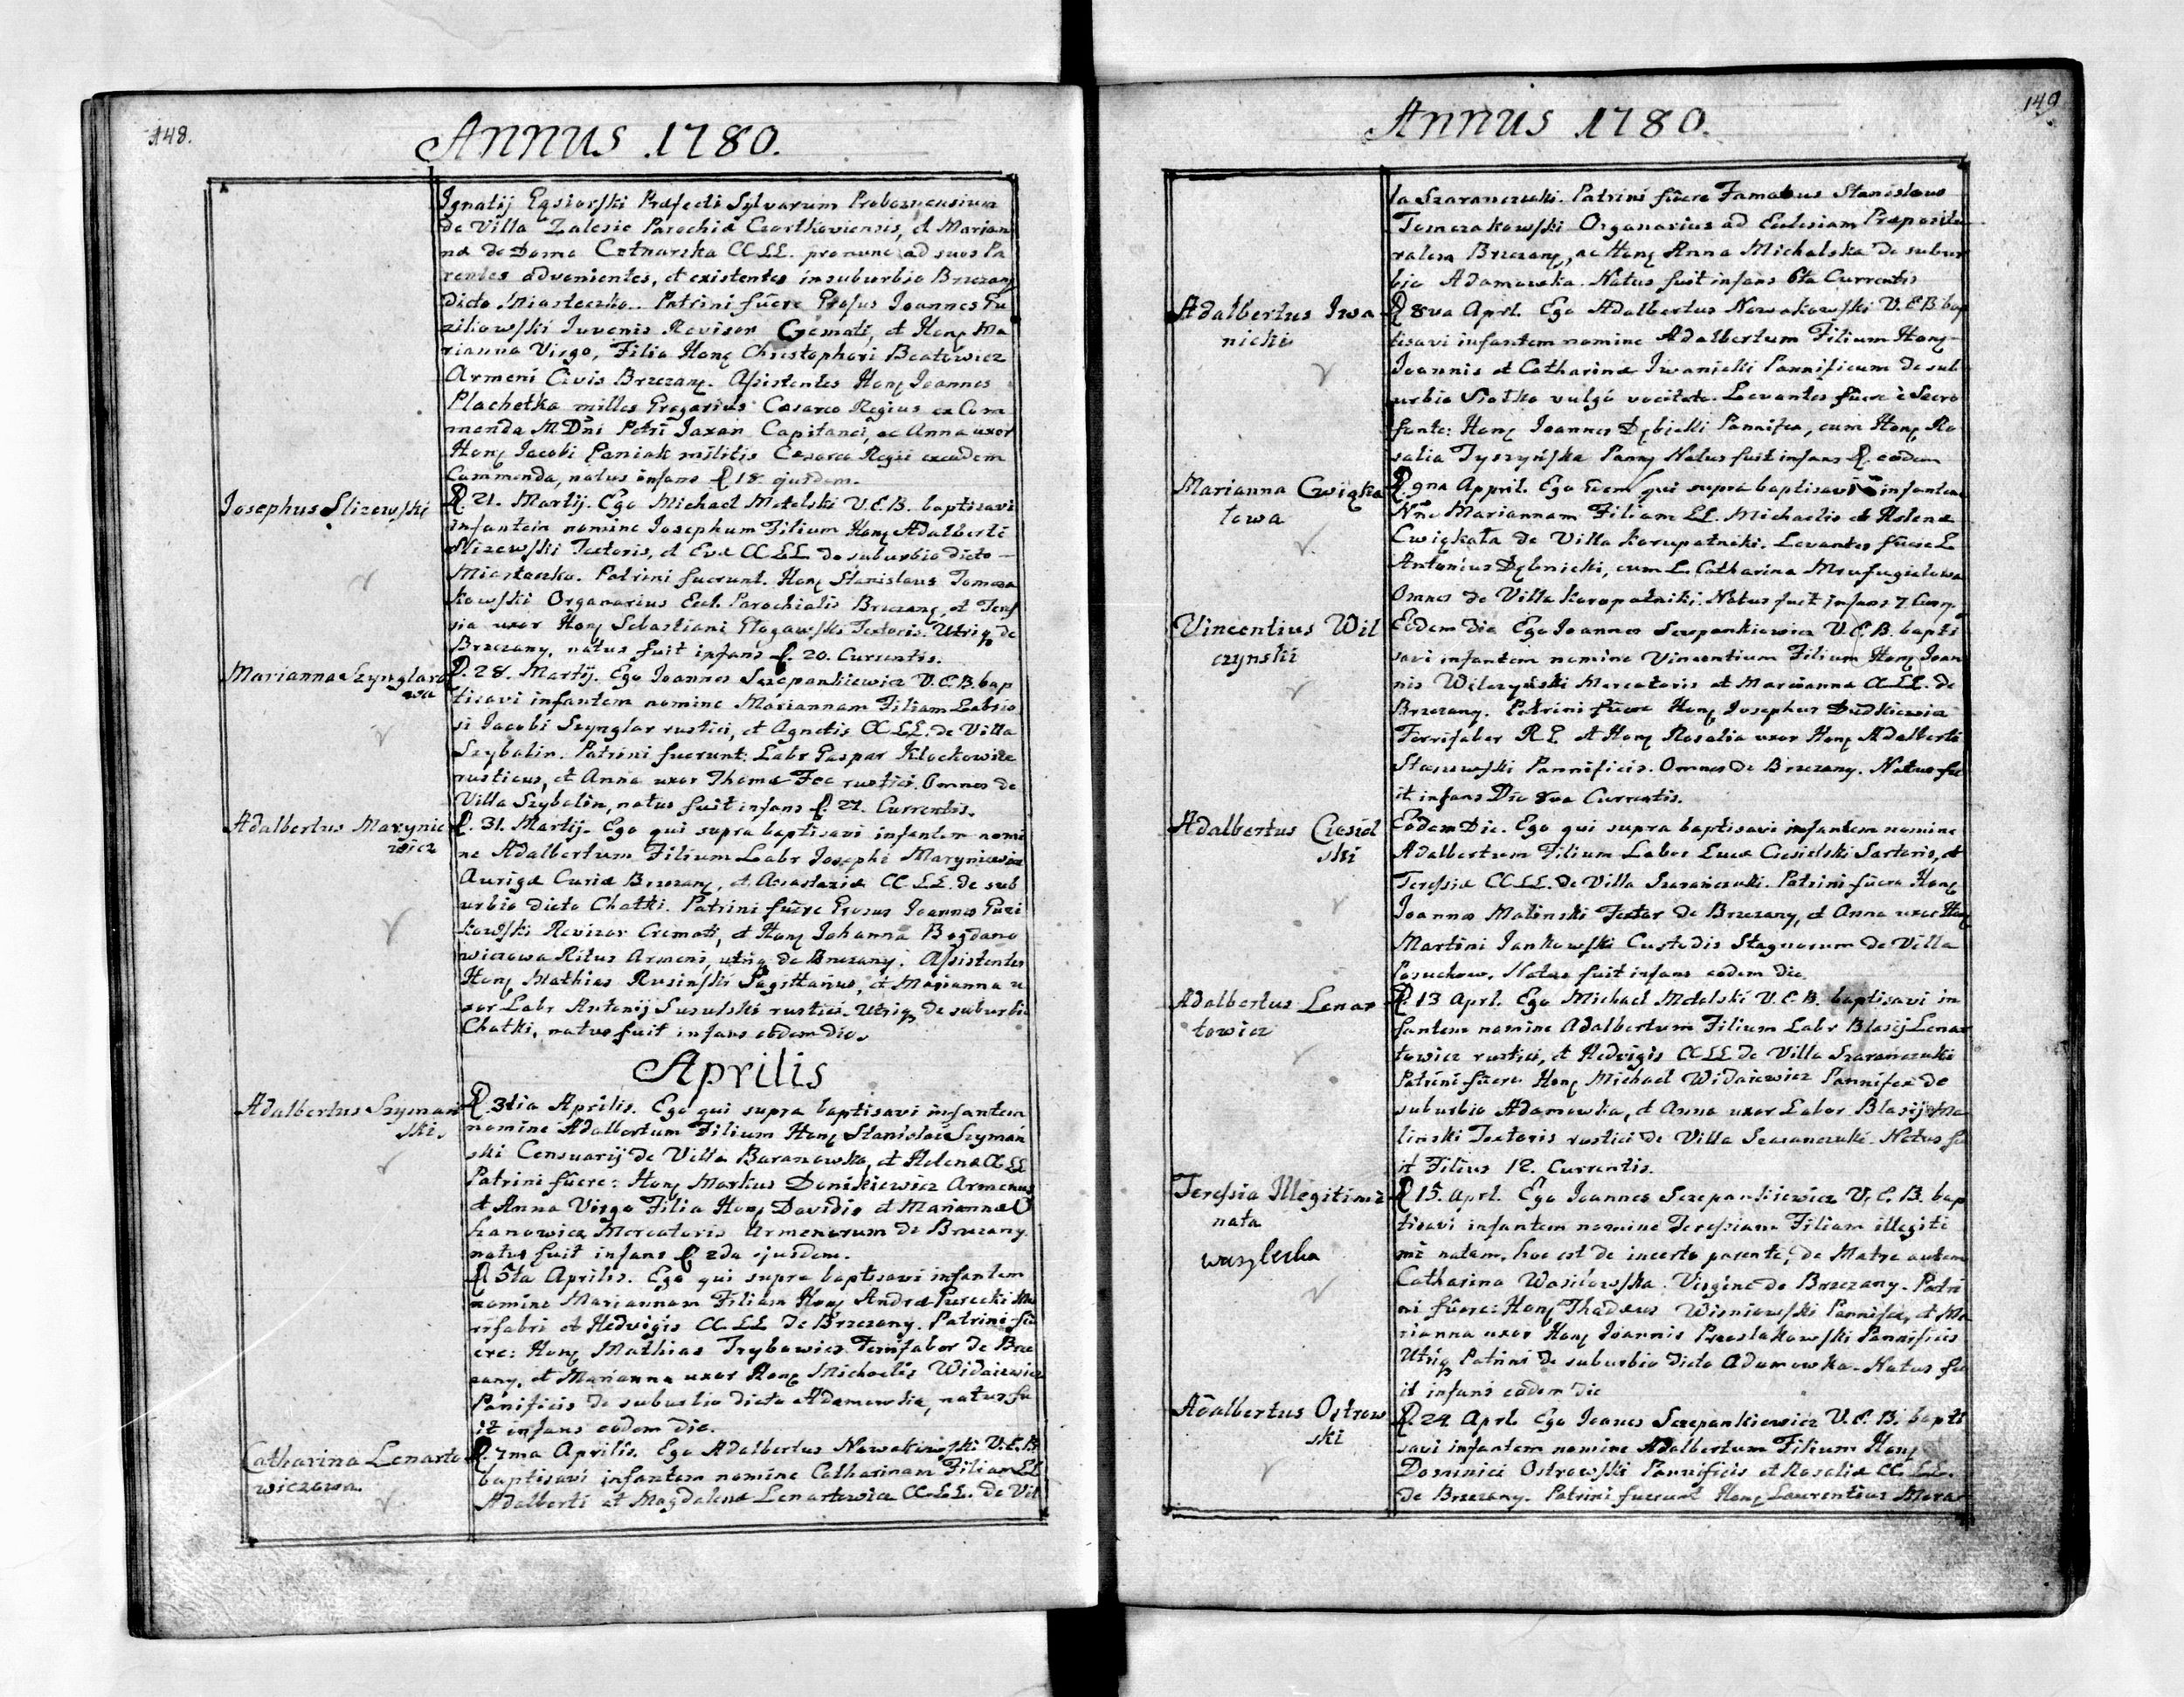 148.
Annus 1780.
Ignatij Gąsiorski Præfecti Sylvarum
de Villa Zalesie Parochiæ Czortkoviensis, et Marian
næ de Domo CC LL. pro nunc ad suos Pa
rentes advenientes, et existentes in suburbio Brzezany
dicto Miasteczko. Patrini fûere Joannes Gu
zikowski Juvenis Revisor Cremati, et Hong Ma
rianna Virgo, Filia Hong Christophori Beatowicz
Armeni Civis Brzezany. Assistentes Hong Joannes
Plachetka milles Gregarius Cæsareo Regius ex Com
menda M Dni Petri Jaxan Capitanei, ac Anna uxor
Hong Jacobi Paniak militis Cæsareo Regii ex eadem
Commenda, natus infans D 18 ejusdem.
Josephus Slizowski
D 21. Martij. Ego Michael Metelski V.E.B. baptisavi
infantem nomine Josephum Filium Hong Adalberti
Slizewski Textoris, et Evæ CC LL de suburbio dicto
Miasteczko. Patrini fuerunt. Hong Stanislaus Tomcza
kowski Organarius Eccl. Parochialis Brzezany, et Teres
sia uxor Hong Sebastiani Głogowski Textoris. Utriq de
Brzezany, natus fuit infans D. 20. Currentis.
Marianna Szynglaro
wa
D. 28. Martij. Ego Joannes Szczepankiewicz V.E.B. bap
tisavi infantem nomine Mariannam Filiam Laborio
si Jacobi Szynglar rustici, et Agnetis CC LL. de Villa
Szybalin. Patrini fuerunt: Labr Gaspar Klockowicz
rusticus, et Anna uxor Thomæ Foc rustici. Omnes de
Villa Szybalin, natus fuit infans D. 27. Currentis.
Adalbertus Marynie
wicz
D. 31. Martij. Ego qui supra baptisavi infantem nomi
ne Adalbertum Filium Labr Josephi Maryniewicz
Aurigæ Curiæ Brzezany, et Anastaziæ CC LL. de sub
urbio dicto Chatki. Patrini fûere Joannes Guzi
kowski Revizor Cremati, et Hong Johanna Bogdano
wiczowa Ritus Armeni, utriq de Brzezany. Assistentes
Hong Mathias Rusinski Sagittarius, et Marianna u
xor Labr Antonij Susulski rustici. Utriq de suburbio
Chatki, natus fuit infans eodem die.
Aprilis
Adalbertus Szyman
ski
D. 3tia Aprilis. Ego qui supra baptisavi infantem
nomine Adalbertum Filium Hong Stanislai Szyman
ski Censuarij de Villa Baranowka, et Helenæ CC LL
Patrini fûere: Hong Markus Donikiewicz Armenus
et Anna Virgo Filia Hong Davidis et Mariannæ O
hanowicz Mercatoris Armenorum de Brzezany
natus fuit infans D 2da ejusdem.
D 5ta Aprilis. Ego qui supra baptisavi infantem
nomine Mariannam Filiam Hong Andreæ Purecki
rifabri et Hedvigis CC LL de Brzezany. Patrini fu
ere: Hong Mathias Trybowicz Ferrifaber de Brze
zany, et Marianna uxor Hong Michaelis Widaiewicz
Panificis de suburbio dicto Adamowka, natus fu
it infans eodem die.
Catharina Lenarto
wiczowa.
D. 7ma Aprilis. Ego Adalbertus Nowakowski V.E.B
baptisavi infantem nomine Catharinam Filiam LL
Adalberti et Magdalenæ Lenartowicz CC LL. de Vil
149
Annus 1780.
la Szaranczuki. Patrini fûere Famatus Stanislaus
Tomczakowski Organarius ad Ecclesiam Præpositu
ralem Brzezany, ac Hong Anna Michalska de subur
bio Adamowka. Natus fuit infans 6ta Currentis
Adalbertus Iwa
nicki
D 8va Aprl. Ego Adalbertus Nowakowski V.E.B bap
tisavi infantem nomine Adalbertum Filium Hong
Joannis et Catharinæ Iwanicki Pannificum de sub
urbio Siołko vulgo vocitato. Levantes fûere è Sacro
fonte: Hong Joannes Dębicki Pannifex, cum Hong Ro
salia Tyszyńska Panny Natus fuit infans D. eodem
Marianna Cwiąka
towa
D 9na Appril. Ego idem qui supra baptisavi infantem
Nne Mariannam Filiam LL. Michaelis et Helenæ
Cwiękała de Villa Koropatniki. Levantes fûere L
Antonius Dębnicki, cum L. Catharina
Omnes de Villa Koropatniki. Natus fuit infans 7 Curr.
Vincentius Wil
czynski
Eodem die Ego Joannes Szczepankiewicz V.E.B. bapti
savi infantem nomine Vincentium Filium Hong Joan
nis Wilczyński Mercatoris et Marianna CC LL. de
Brzezany. Patrini fûere Hong Josephus Dudkiewicz
Ferrifaber R L et Hong Rosalia uxor Hong Adalberti
Staszewski Pannificis. Omnes de Brzezany. Natus fu
it infans Die 8va Currentis.
Adalbertus Ciesiel
ski
Eodem Die. Ego qui supra baptisavi infantem nomine
Adalbertum Filium Labor Lucæ Ciesielski Sartoris, et
Teressiæ CC LL. de Villa Szaranczuki. Patrini fûere Hong
Joannes Malinski Textor de Brzezany, et Anna uxor Hong
Martini Jankowski Custodis Stagnorum de Villa
Posuchow. Natus fuit infans eodem die
Adalbertus Lenar
towicz
D. 13 Aprl. Ego Michael Metelski V.E.B. baptisavi in
fantem nomine Adalbertum Filium Labr Blasij Lenar
towicz rustici, et Hedvigis CC LL de Villa Szaranczuki
Patrini fûere Hong Michael Widaiewicz Pannifex de
suburbio Adamowka, et Anna uxor Labor Blasij Ma
linski Textoris rustici de Villa Szaranczuki. Natus fu
it Filius 12. Currentis.
Teressia Illegitimè
nata
wasylecha
D 15. Aprl. Ego Joannes Szczepankiewicz V.E.B. bap
tisavi infantem nomine Teressiam Filiam illegiti
mè natam, hoc est de incerto parente, de Matre autem
Catharina Wasilowska Virgine de Brzezany. Patri
ni fûere: Hong Thadæus Wisniowski Pannifex, et Ma
rianna uxor Hong Joannis Przeslakowski Pannificis
Utriq Patrini de suburbio dicto Adamowka. Natus fu
it infans eodem die
Adalbertus Ostrow
ski
D 24 Aprl. Ego Joanes Szczepankiewicz V.E.B. bapti
savi infantem nomine Adalbertum Filium Hong
Dominici Ostrowski Pannificis et Rosaliæ CC LL.
de Brzezany. Patrini fuerunt Hong Laurentius Moraw